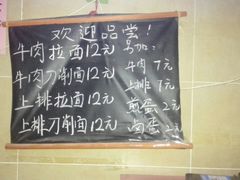 欢迎品尝！
牛肉拉面12元
牛肉刀削面12元
上排拉面12元
上排刀削面12元
另加：
牛肉 7元
上排 7元
煎蛋 2元
卤蛋 2元